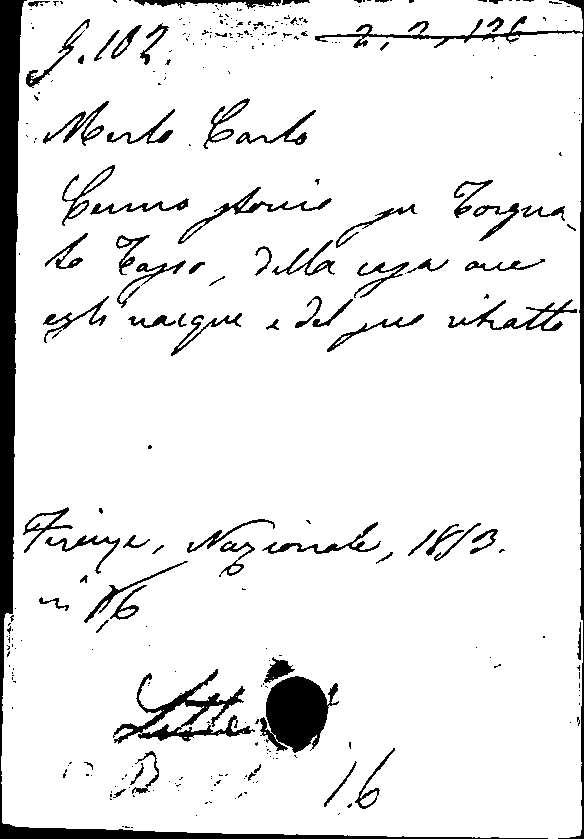 G.102.
2, 2, 126
Merlo Carlo
Cenno storico su Torqua-
to Tasso, della casa ove
egli nacque e del suo ritratto
Firenze, Nazionale, 1853.
in 16
16